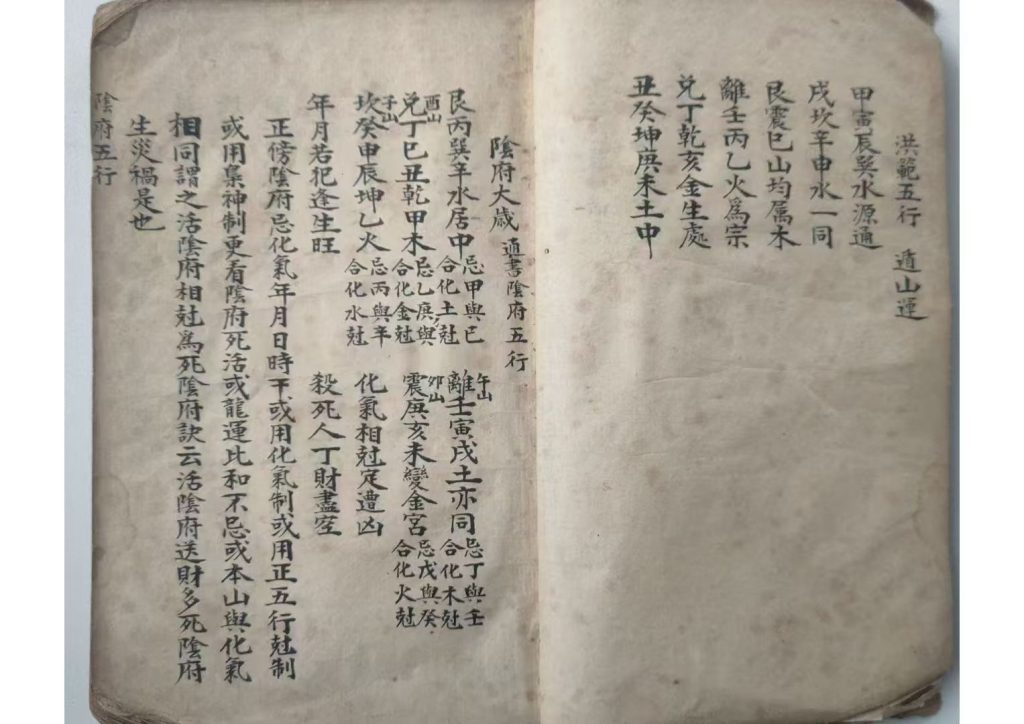 洪範五行　遁山運
甲寅辰巽水源通
戌坎辛申水一同
艮震巳山均属木
離壬丙乙火爲宗
兌丁乾亥金生處
丑癸坤庚未土中
陰府大歲　通書陰府五行
艮丙巽辛水居中　忌甲與巳合化土尅　午山離壬寅戌土亦同　忌丁與壬合化木尅
酉山兌丁巳丑乾甲木　忌乙庚與合化金尅　卯山震庚亥未變金宮　忌戊與癸合化火尅
子山坎癸申辰坤乙火　忌丙與辛合化水尅　化氣相尅定遭凶
年月若犯逢生旺　殺死人丁財盡空
正傍陰府忌化氣年月日時干或用化氣制或用正五行尅制
或用梟神制更看陰府死活或龍運比和不忌或本山與化氣
相同謂之活陰府相尅爲死陰府訣云活陰府送財多死陰府
生災禍是也
陰府五行